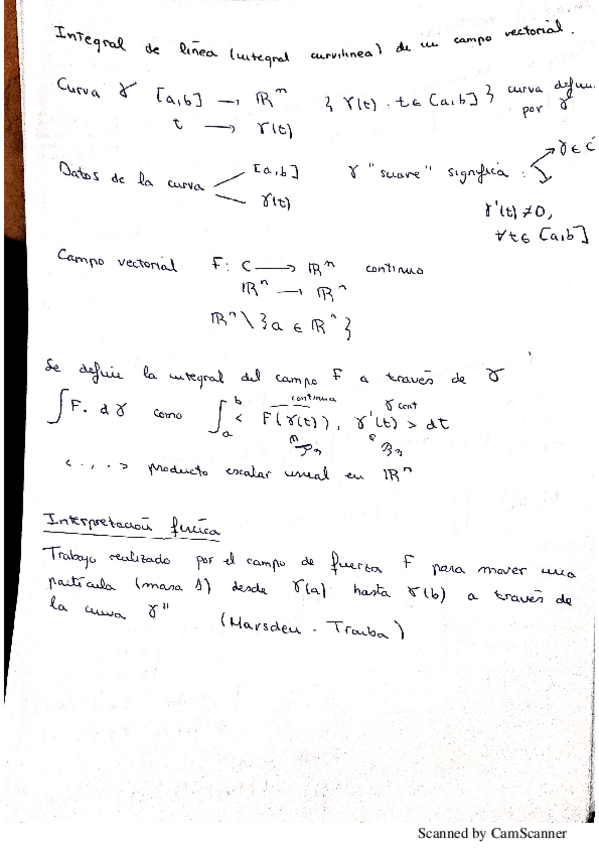 Integral de línea (integral curvilínea) de un campo vectorial.
Curva γ [a,b] → ℝⁿ { γ(t) . t ∈ [a,b] } curva defin
t → γ(t) por γ
Datos de la curva [a,b] γ "suave" significa : γ ∈ C
γ(t) γ'(t) ≠ 0,
∀t ∈ [a,b]
Campo vectorial F: C → ℝⁿ continuo
ℝⁿ → ℝⁿ
ℝⁿ \ { a ∈ ℝⁿ }
Se define la integral del campo F a través de γ
∫ F. dγ como ∫ₐᵇ < F(γ(t)), γ'(t) > dt
continua γ' cont
∈ ℝⁿ ∈ ℝⁿ
< . , . > producto escalar usual en ℝⁿ
Interpretación física
Trabajo realizado por el campo de fuerza F para mover una
partícula (masa 1) desde γ(a) hasta γ(b) a través de
la curva γ" (Marsden - Tromba)
Scanned by CamScanner